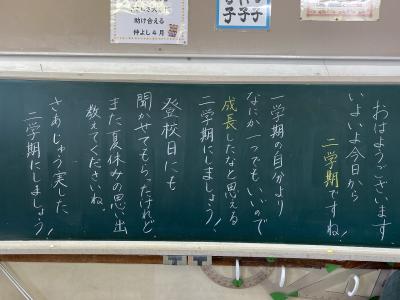 おはようございます
いよいよ今日から
二学期ですね！
一学期の自分より
なにか一つでもいいので
成長したなと思える
二学期にしましょう！
登校日にも
聞かせてもらったけれど、
また夏休みの思い出
教えてくださいね。
さあじゅう実した
二学期にしましょう！
助け合える
仲よし4月